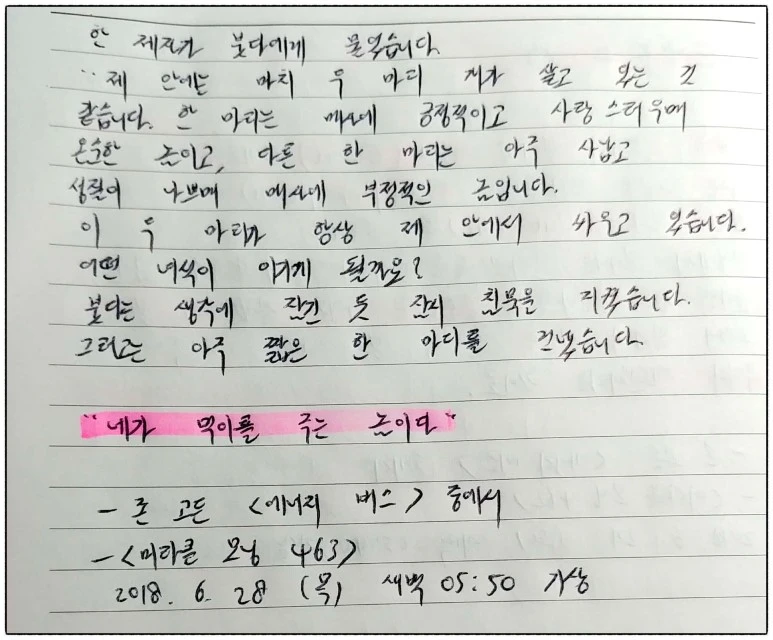 한 제자가 붓다에게 물었습니다.
"제 안에는 마치 두 마리 개가 살고 있는 것
같습니다. 한 마리는 매사에 긍정적이고 사랑스러우며
온순한 놈이고, 다른 한 마리는 아주 사납고
성질이 나쁘며 매사에 부정적인 놈입니다.
이 두 마리가 항상 제 안에서 싸우고 있습니다.
어떤 녀석이 이기게 될까요?
붓다는 생각에 잠긴 듯 잠시 침묵을 지켰습니다.
그리고는 아주 짧은 한 마디를 건넸습니다.
"네가 먹이를 주는 놈이다"
- 존 고든 <에너지 버스> 중에서
- <미라클 모닝 463>
2018. 6. 28 (목) 새벽 05:50 기상